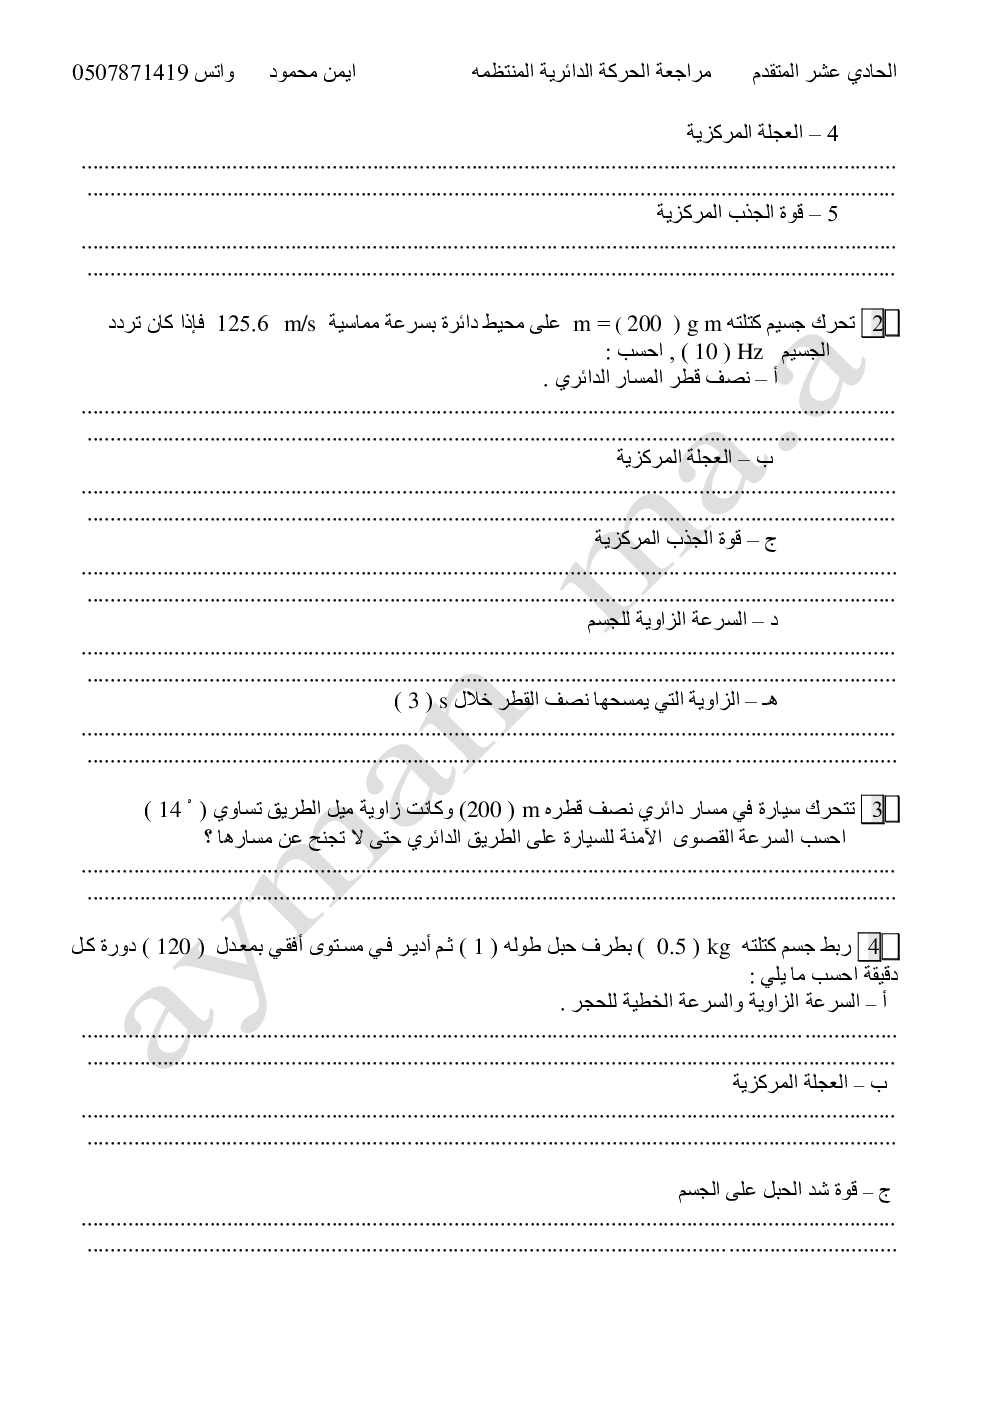 الحادي عشر المتقدم مراجعة الحركة الدائرية المنتظمه ايمن محمود واتس 0507871419
4 – العجلة المركزية
5 – قوة الجذب المركزية
2 تحرك جسيم كتلته m = ( 200 ) g m على محيط دائرة بسرعة مماسية 125.6 m/s فإذا كان تردد
الجسيم ( 10 ) Hz , احسب :
أ – نصف قطر المسار الدائري .
ب – العجلة المركزية
ج – قوة الجذب المركزية
د – السرعة الزاوية للجسم
هـ – الزاوية التي يمسحها نصف القطر خلال ( 3 ) s
3 تتحرك سيارة في مسار دائري نصف قطره (200 ) m وكانت زاوية ميل الطريق تساوي ( 14 ° )
احسب السرعة القصوى الآمنة للسيارة على الطريق الدائري حتى لا تجنح عن مسارها ؟
4 ربط جسم كتلته ( 0.5 ) kg بطرف حبل طوله ( 1 ) ثم أدير في مستوى أفقي بمعدل ( 120 ) دورة كل
دقيقة احسب ما يلي :
أ – السرعة الزاوية والسرعة الخطية للحجر .
ب – العجلة المركزية
ج – قوة شد الحبل على الجسم
ayman ma.a